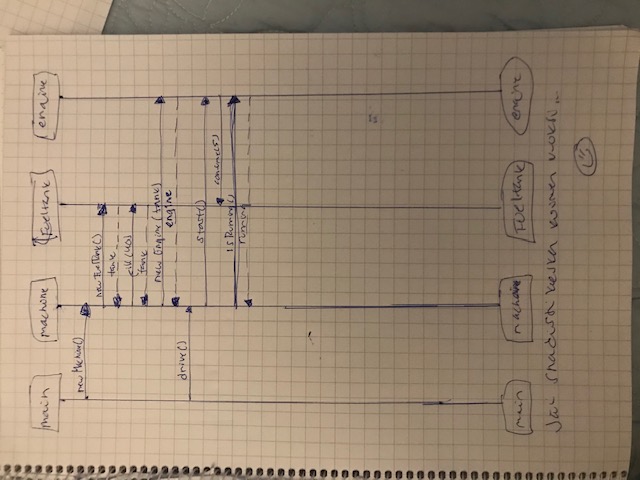 main machine Fueltank engine
new Machine()
new FuelTank()
tank
fill(40)
tank
new Engine(tank)
engine
drive()
start()
consume(5)
isRunning()
running
main machine Fueltank engine
kesken